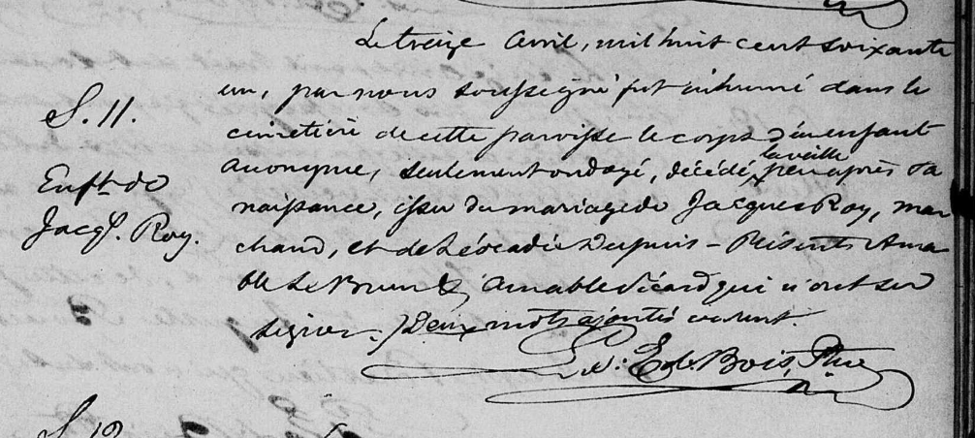 S. 11.
Enft. de
Jacqs. Roy.
Le treize Avril, mil huit cent soixante
un, par nous soussigné fut inhumé dans le
cimetière de cette paroisse le corps d'un enfant
anonyme, seulement ondoyé, décédé la veille peu après sa
naissance, issu du mariage de Jacques Roy, mar
chand, et de Léocadie Dupuis - Présents Ama
ble LeBrun & Amable Sicard qui n'ont su
signer. / Deux mots ajoutés valent.
Ed. Bois, Ptre
S. 12